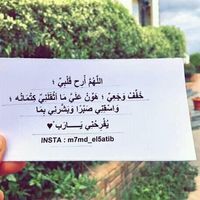 اللهُم أرح قَلبِي ؛
خَفِّف وَجَعِي ؛ هَوّن عَنِّي مَا أثقَلَنِي كِتمَانُه ؛
وَاسقِنِي صَبرًا وَبَشِّرنِي بِمَا
يُفرِحُنِي يَـــــارَب ♥
INSTA : m7md_el5atib